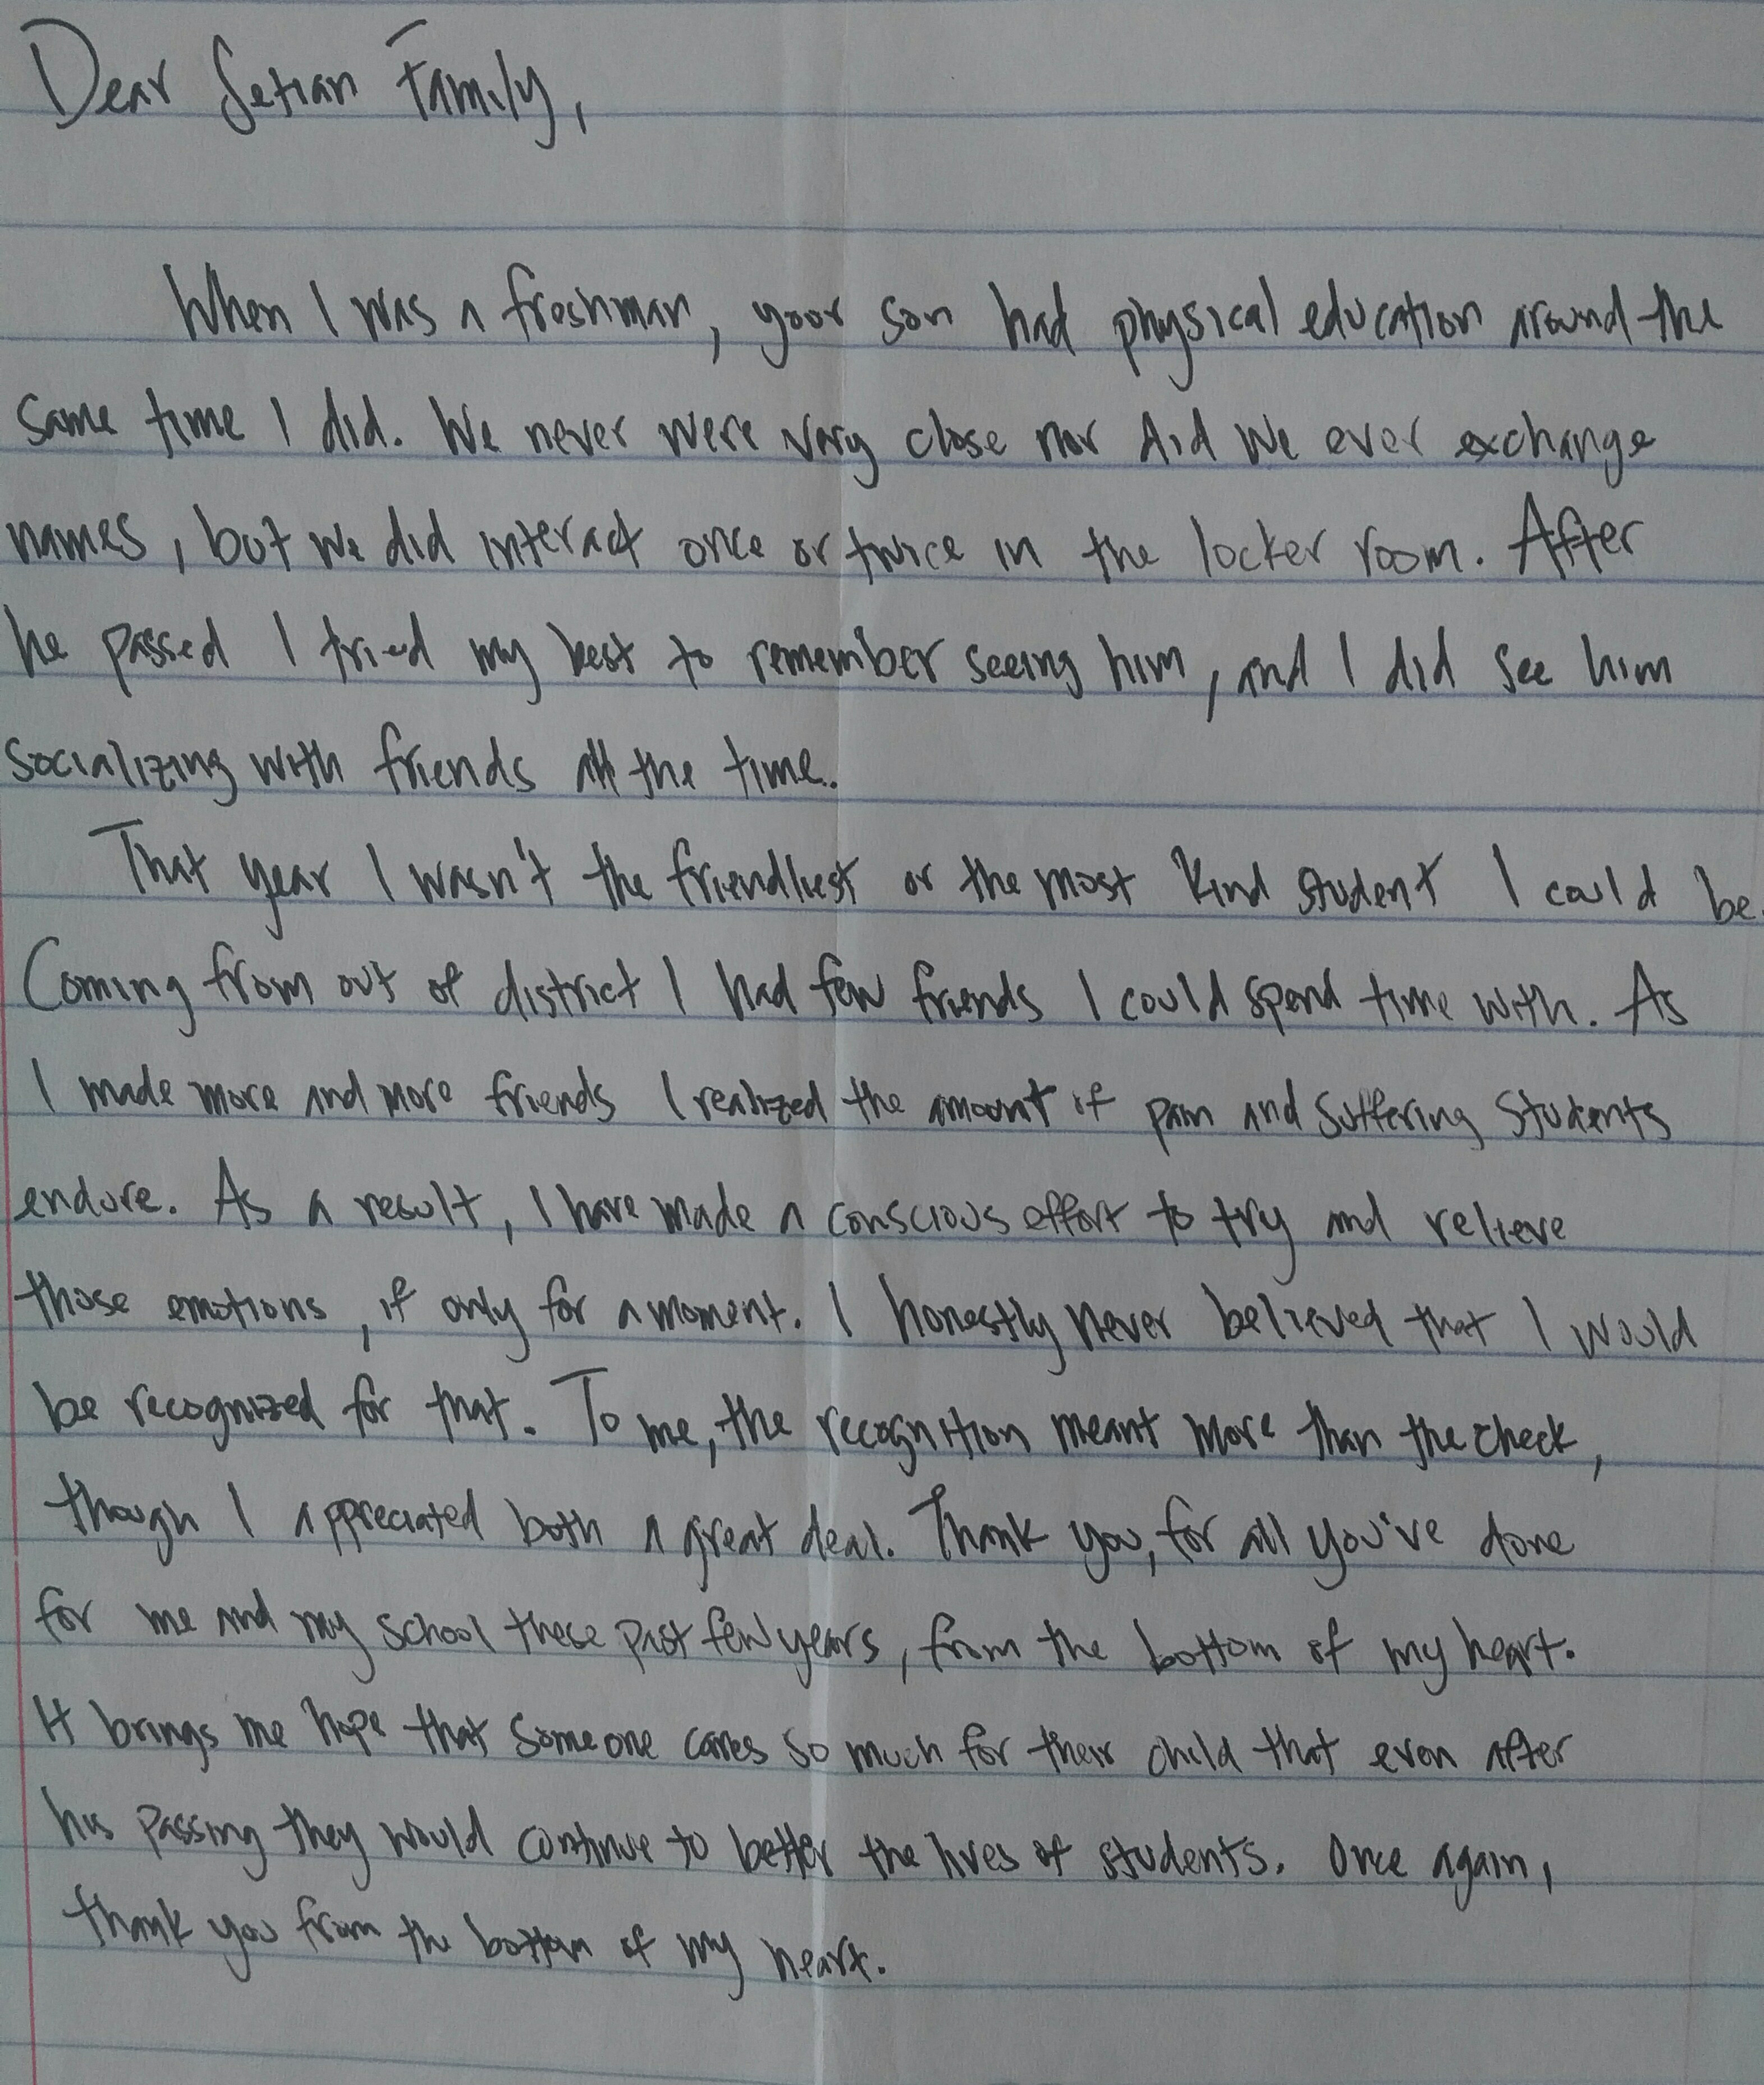 Dear Setian Family,
When I was a freshman, your son had physical education around the
same time I did. We never were very close nor did we ever exchange
names, but we did interact once or twice in the locker room. After
he passed I tried my best to remember seeing him, and I did see him
socializing with friends all the time.
That year I wasn't the friendliest or the most kind student I could be.
Coming from out of district I had few friends I could spend time with. As
I made more and more friends I realized the amount of pain and suffering students
endure. As a result, I have made a conscious effort to try and relieve
those emotions, if only for a moment. I honestly never believed that I would
be recognized for that. To me, the recognition meant more than the check,
though I appreciated both a great deal. Thank you, for all you've done
for me and my school these past few years, from the bottom of my heart.
It brings me hope that someone cares so much for their child that even after
his passing they would continue to better the lives of students. Once again,
thank you from the bottom of my heart.